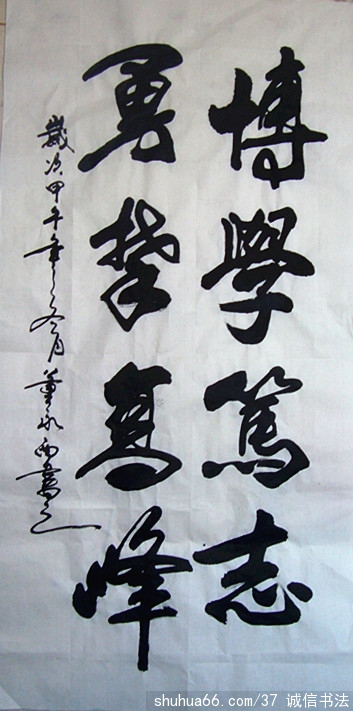 博學篤志
勇攀高峰
歲次甲午年之冬月董永西書之
shuhua66.com/37 诚信书法